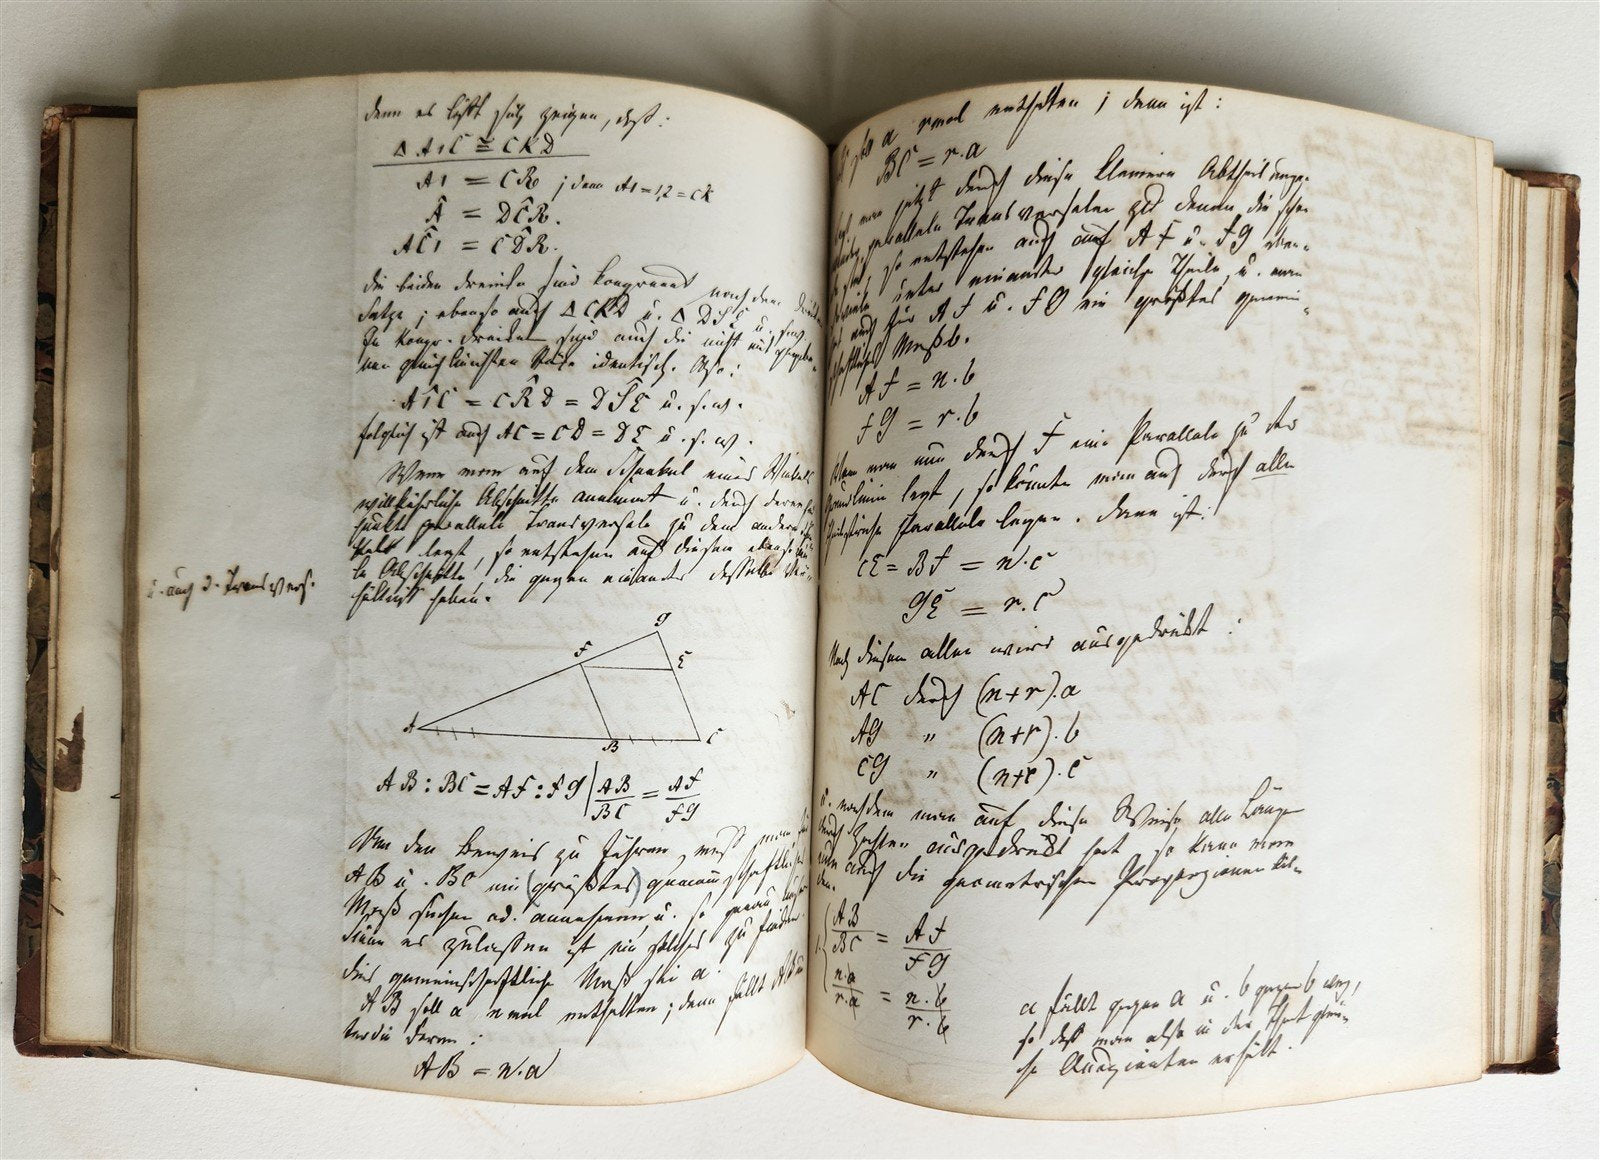 denn es läßt sich zeigen, daß:
Δ A1C ≅ CKD
A1 = CK ; denn A1 = 1,2 = CK
Â = DĈK.
AĈ1 = CD̂K.
Die beiden Dreiecke sind kongruent nach dem
Satze; ebenso auch Δ CKD u. Δ u. s. w.
In kongr. Dreiecken sind auch die nicht mit gegebe-
nen gleichliegenden Stücke identisch. Also:
A1̂C = CK̂D = u. s. w.
folglich ist auch AC = CD = DE u. s. w.
Wenn man auf dem Schenkel eines Winkels
willkührliche Abschnitte annimmt u. durch deren
punkte parallele Transversale zu dem andern
legt, so entstehen auf diesem ebenso
Abschnitte, die gegen einander dasselbe Ver-
hältniß haben.
u. auch d. Transvers.
G
F
E
A
B
C
AB : BC = AF : FG | AB/BC = AF/FG
Um den Beweis zu führen, muß man für
AB u. BC ein (größtes) gemeinschaftliches
Maß suchen od. annehmen, u. so genau unsere
Sinne es zulassen ist ein solches zu finden.
Dies gemeinschaftliche Maß sei a.
AB soll a nmal enthalten; dann
AB = n.a
a rmal enthalten; dann ist:
BC = r.a
man jetzt durch diese kleinern Abtheilungs-
parallele Transversalen zu denen die schon
sind, so entstehen auch auf AF u. FG eben-
soviele unter einander gleiche Theile, u. man
auch für AF u. FG ein größtes gemein-
schaftliches Maß b.
AF = n.b
FG = r.b
Wenn man nun durch F eine Parallele zu der
Grundlinie legt, so könnte man auch durch alle
Parallele legen. Dann ist:
CE = BF = n.c
GE = r.c
Nach diesem allen wird ausgedrückt:
AC durch (n+r).a
AG " (n+r).b
CG " (n+r).c
u. nachdem man auf diese Weise alle Länge
durch Zahlen ausgedrückt hat, so kann man
nun auch die geometrischen Proporzionen bil-
den.
AB/BC = AF/FG
n.a/r.a = n.b/r.b
a fällt gegen a u. b gegen b weg,
so daß man also in der That glei-
che Quozienten erhält.